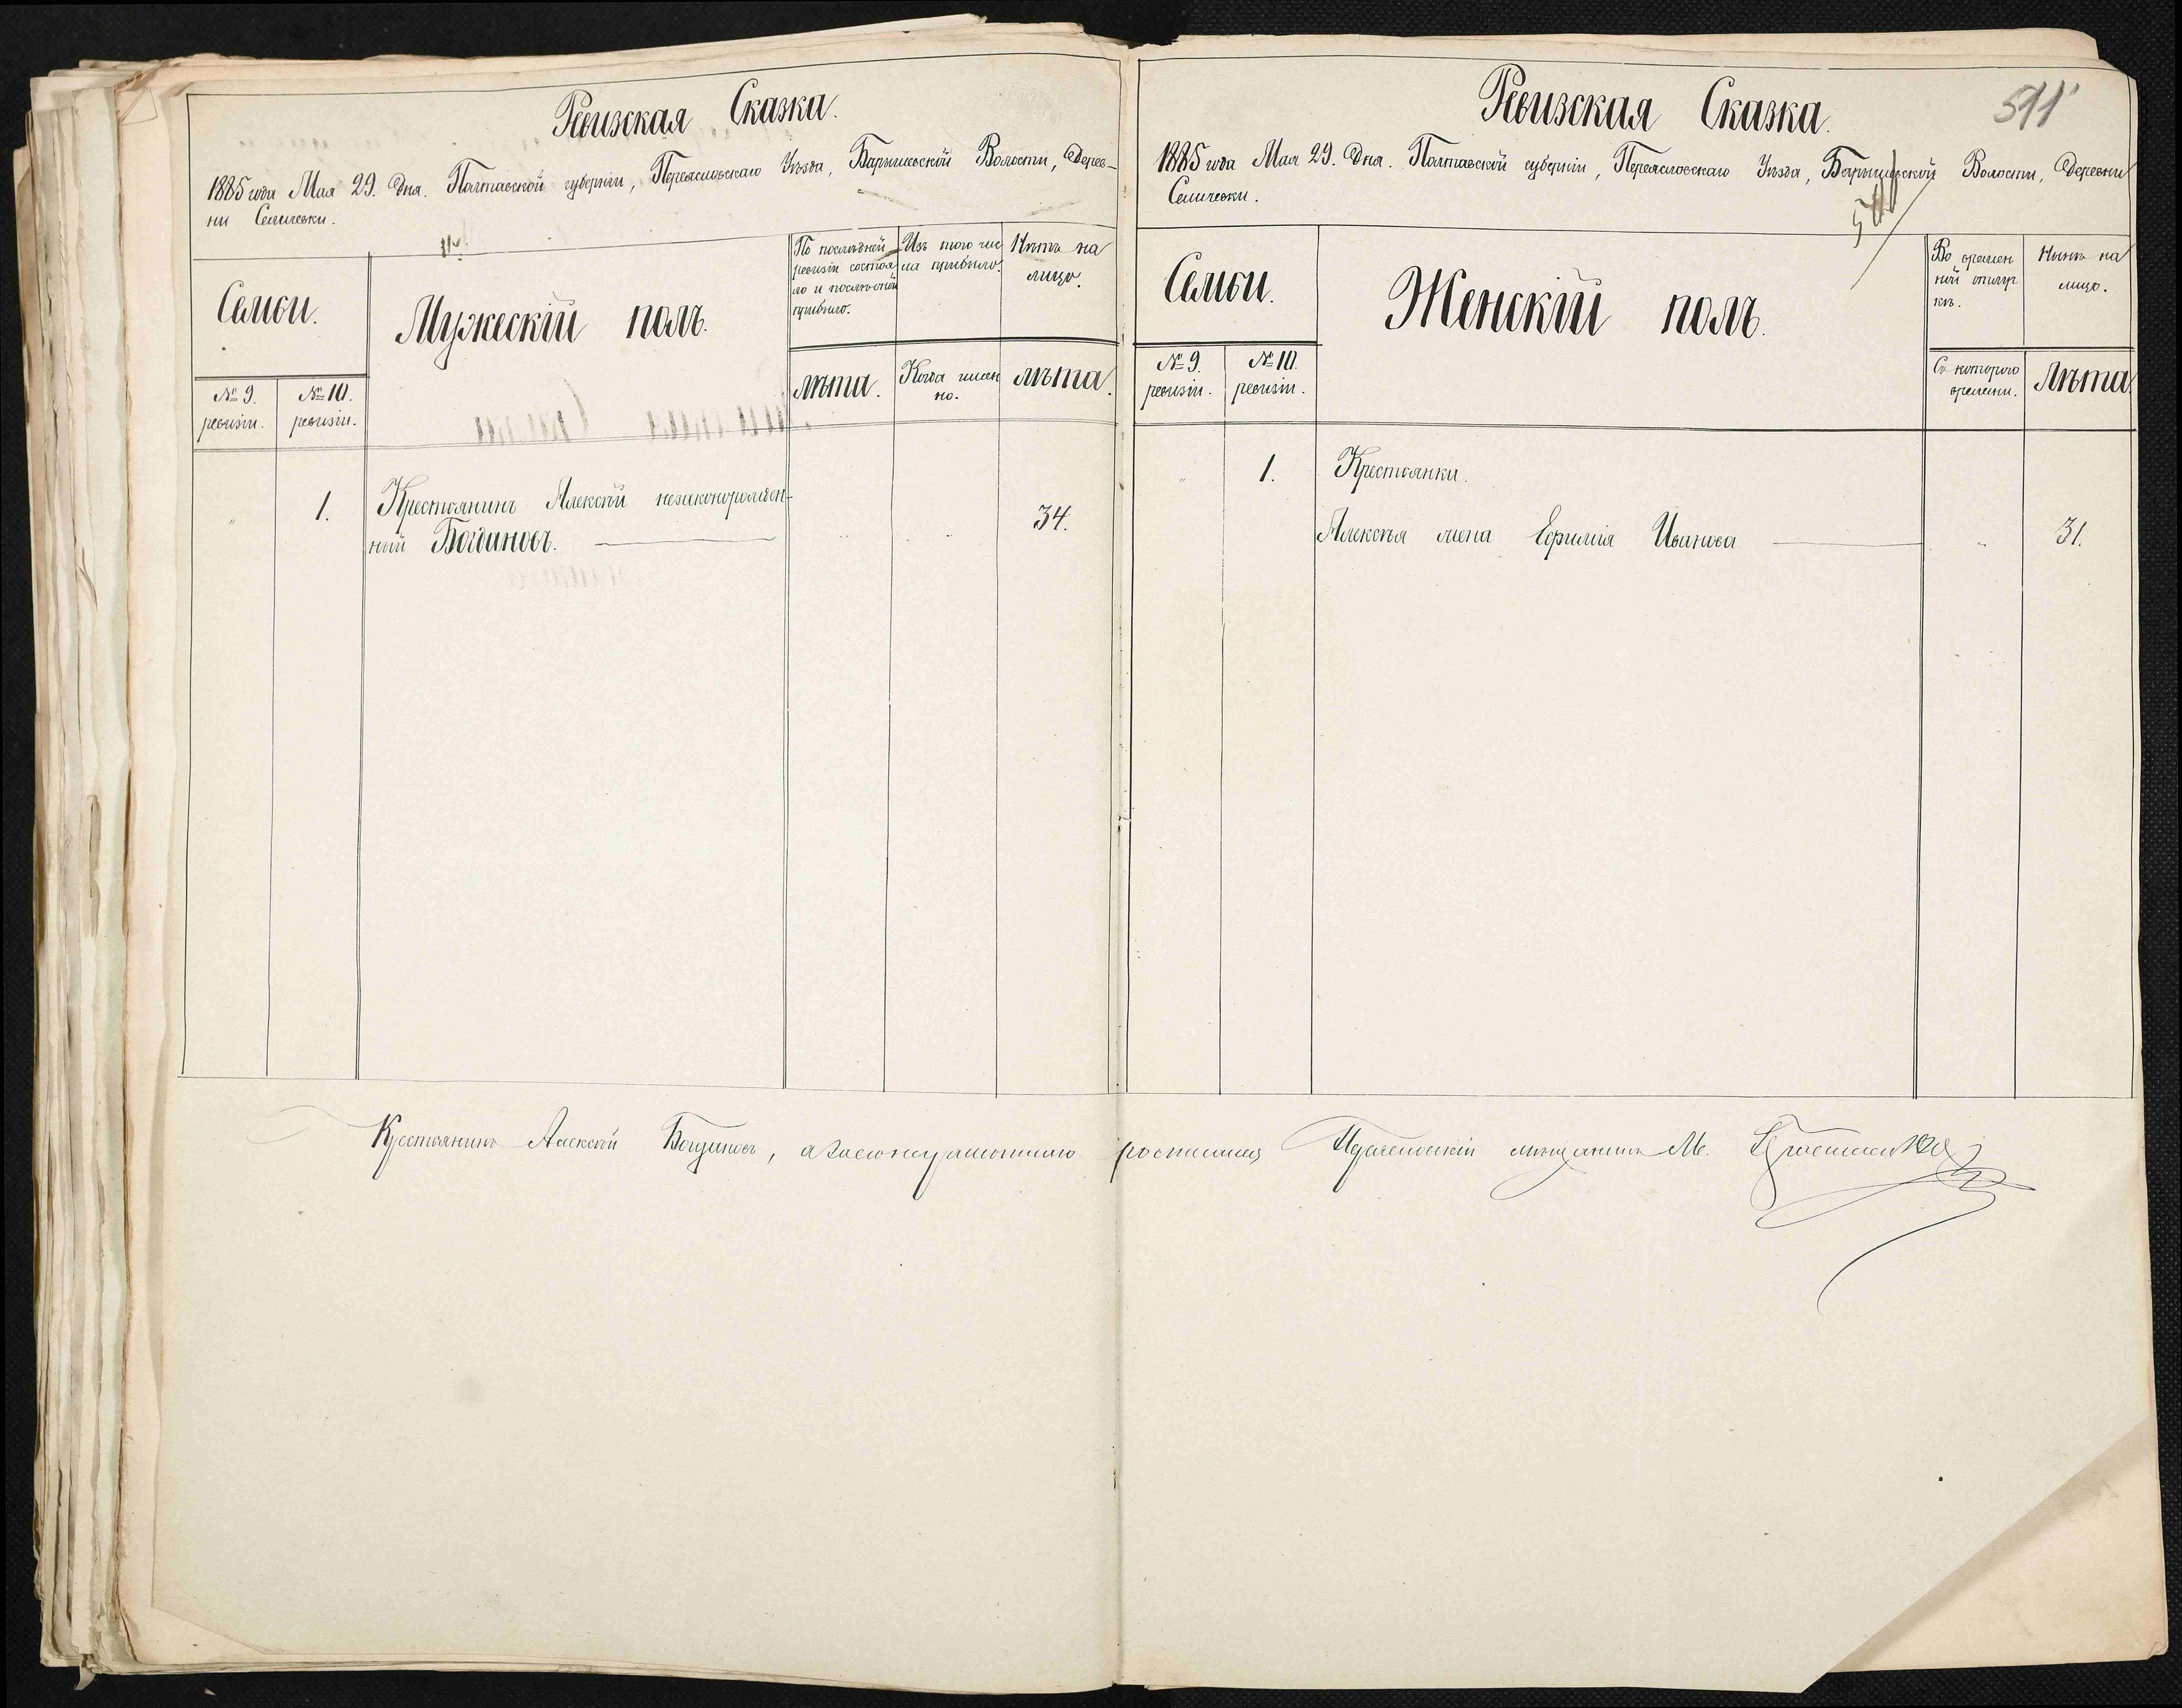 Ревизская Сказка.
1885 года Мая 29. Дня. Полтавской губерніи, Переяславскаго Уѣзда, Барышевской Волости, Дерев-
ни Селичевки.
Семьи.
Мужескій полъ.
По послѣдней
ревизіи состоя
ло и послѣ оной
прибыло.
Изъ того чис
ла прибыло.
Нынѣ на
лицо.
№ 9.
ревизіи.
№ 10.
ревизіи.
лѣта.
Когда имен
но.
лѣта.
„
1.
Крестьянинъ Алексѣй незаконорожден-
ный Богдановъ.
34.
Ревизская Сказка.
511
1885 года Мая 29. Дня. Полтавской губерніи, Переясловскаго Уѣзда, Барышевской Волости, Деревни
Селичевки.
Семьи.
Женскій полъ.
Во времен
ной отлуч
кѣ.
Нынѣ на
лицо.
№ 9.
ревизіи.
№ 10.
ревизіи.
Съ котораго
времени.
Лѣта
„
1.
Крестьянки.
Алексѣя жена Ефимія Иванова
31.
Крестьянинъ Алексѣй Богдановъ, а за его неграмотнаго росписался мѣщанинъ М.